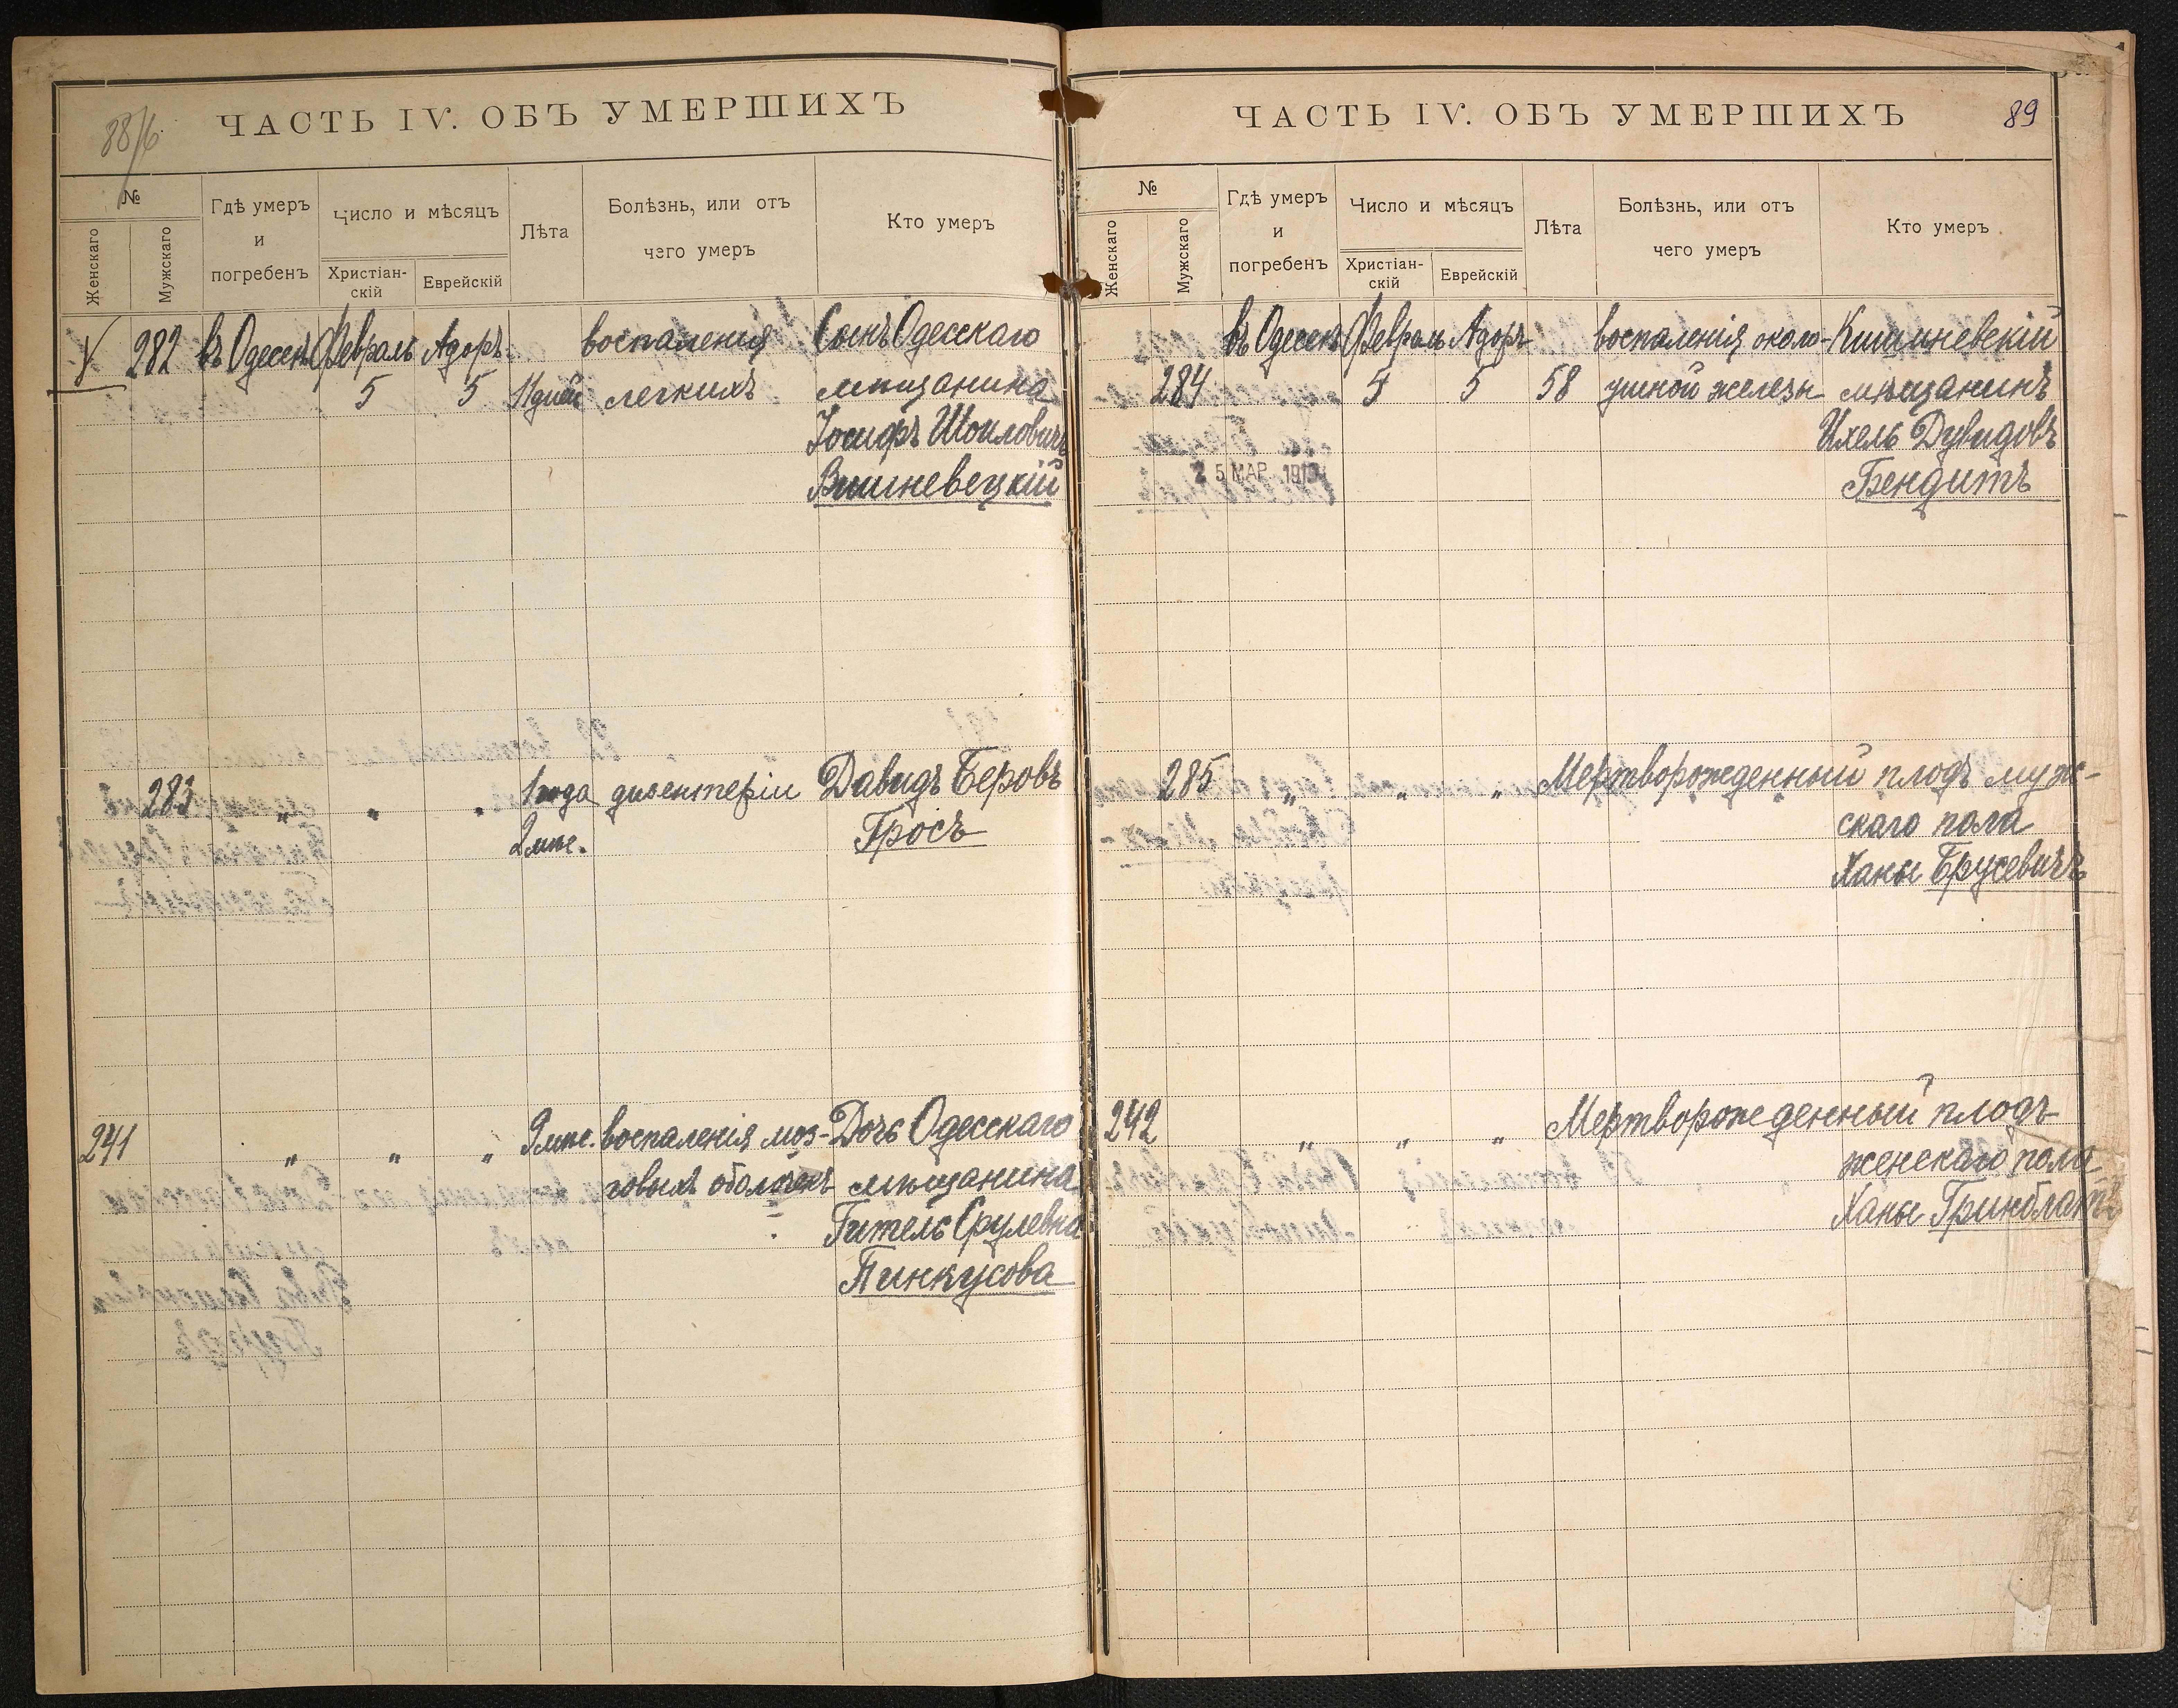 88/б
ЧАСТЬ IV. ОБЪ УМЕРШИХЪ
№
Женскаго
Мужскаго
Гдѣ умеръ
и
погребенъ
Число и мѣсяцъ
Христіан-
скій
Еврейскій
Лѣта
Болѣзнь, или отъ
чего умеръ
Кто умеръ
282 въ Одессѣ Февраль Адоръ воспаленія Сынъ Одесскаго
5 5 11 дней легкихъ мѣщанина
Іосифъ Шоиловичъ
Вишневецкій
283 " " " 1 года дизентеріи Давидъ Беровъ
2 мѣс. Гросъ
241 " " " 9 мѣс. воспаленія моз- Дочь Одесскаго
говыхъ оболочекъ мѣщанина
Гитель Срулевна
Пинкусова
ЧАСТЬ IV. ОБЪ УМЕРШИХЪ 89
№
Женскаго
Мужскаго
Гдѣ умеръ
и
погребенъ
Число и мѣсяцъ
Христіан-
скій
Еврейскій
Лѣта
Болѣзнь, или отъ
чего умеръ
Кто умеръ
въ Одессѣ Февраль Адоръ воспаленія около- Кишиневскій
284 5 5 58 ушной железы мѣщанинъ
Ихель Дувидовъ
25 МАР. 191
Бендитъ
285 " " " Мертворожденный плодъ муж-
скаго пола
Ханы Брусевичъ
242 " " " Мертворожденный плодъ
женскаго пола
Ханы Гринблатъ